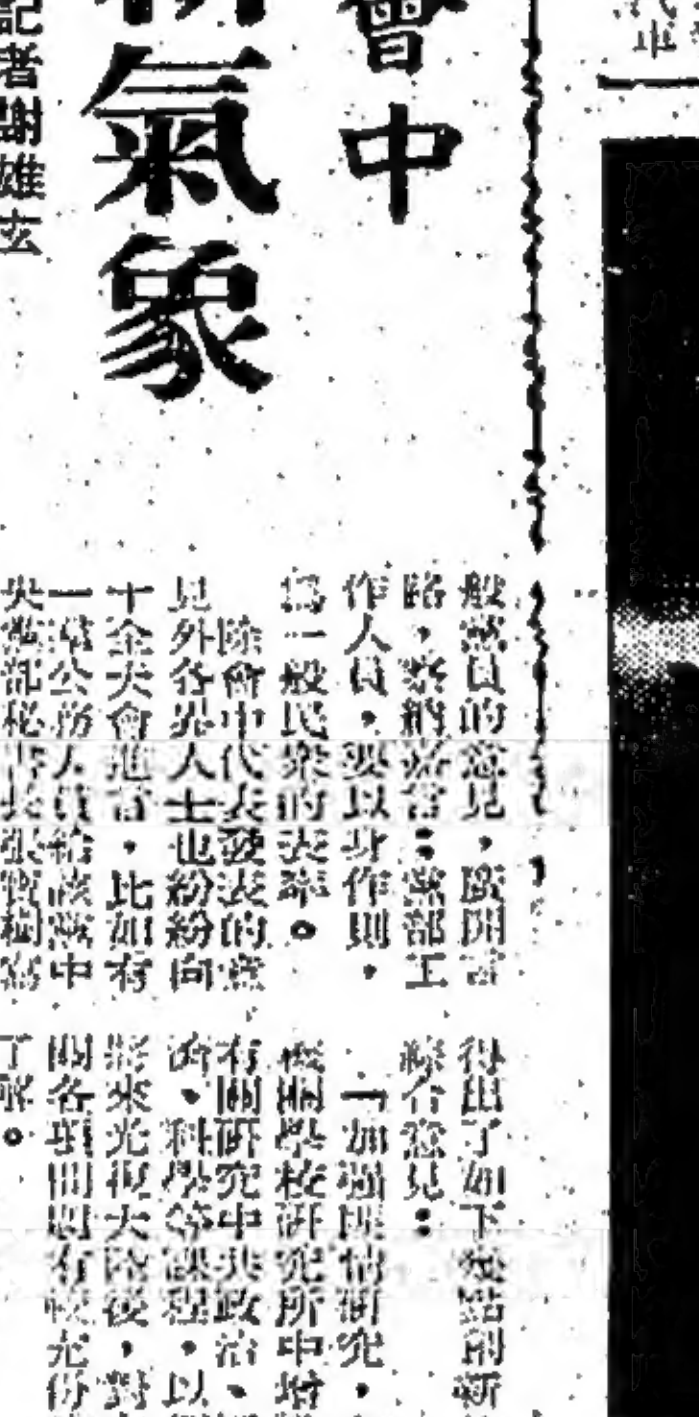 會中
氣象
記者謝雄玄
般黨員的意見，廣開言
路，察納嘉言；黨部工
作人員，要以身作則，
為一般民眾的表率。
除會中代表發表的意
見外各界人士也紛紛向
十全大會進言，比如有
一羣公務人員給該黨中
央黨部秘書長張寶樹寫
得出了如下幾點的新
綜合意見：
一加強匪情研究，
機關學校研究所中增
有關研究中共政治、
濟、科學等課程，以
將來光復大陸後，對
關各項問題有較充份
了解。